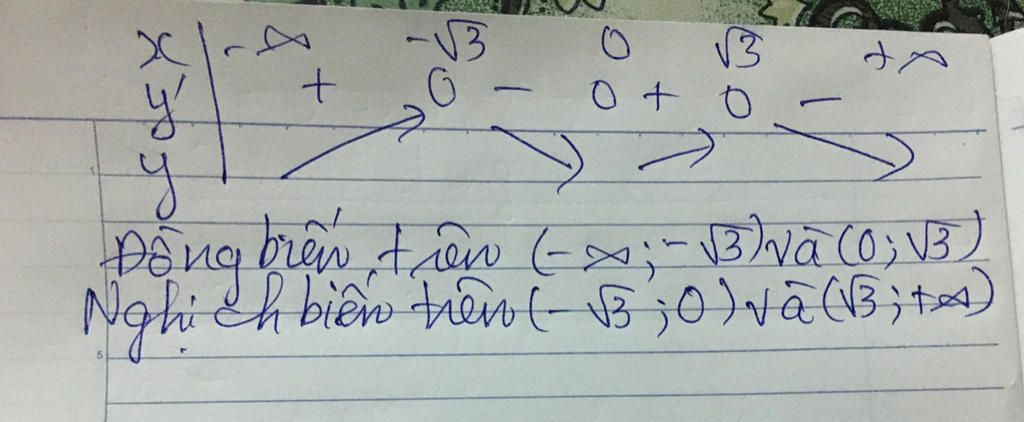 x | -∞ -√3 0 √3 +∞
y' + 0 - 0 + 0 -
y
Đồng biến trên (-∞;-√3) và (0;√3)
Nghịch biến trên (-√3;0) và (√3;+∞)